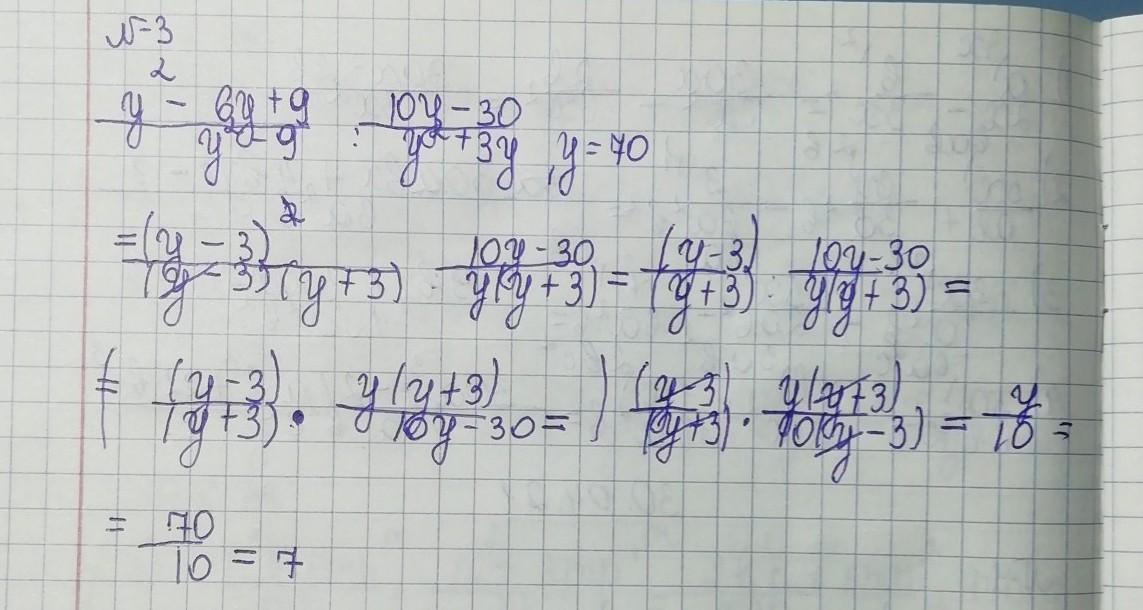 №3
(y² - 6y + 9)/(y² - 9) : (10y - 30)/(y² + 3y), y = 70
= (y - 3)²/((y - 3)(y + 3)) : (10y - 30)/(y(y + 3)) = (y - 3)/(y + 3) : (10y - 30)/(y(y + 3)) =
( = (y - 3)/(y + 3) · y(y + 3)/(10y - 30) = ) (y - 3)/(y + 3) · y(y + 3)/(10(y - 3)) = y/10 =
= 70/10 = 7